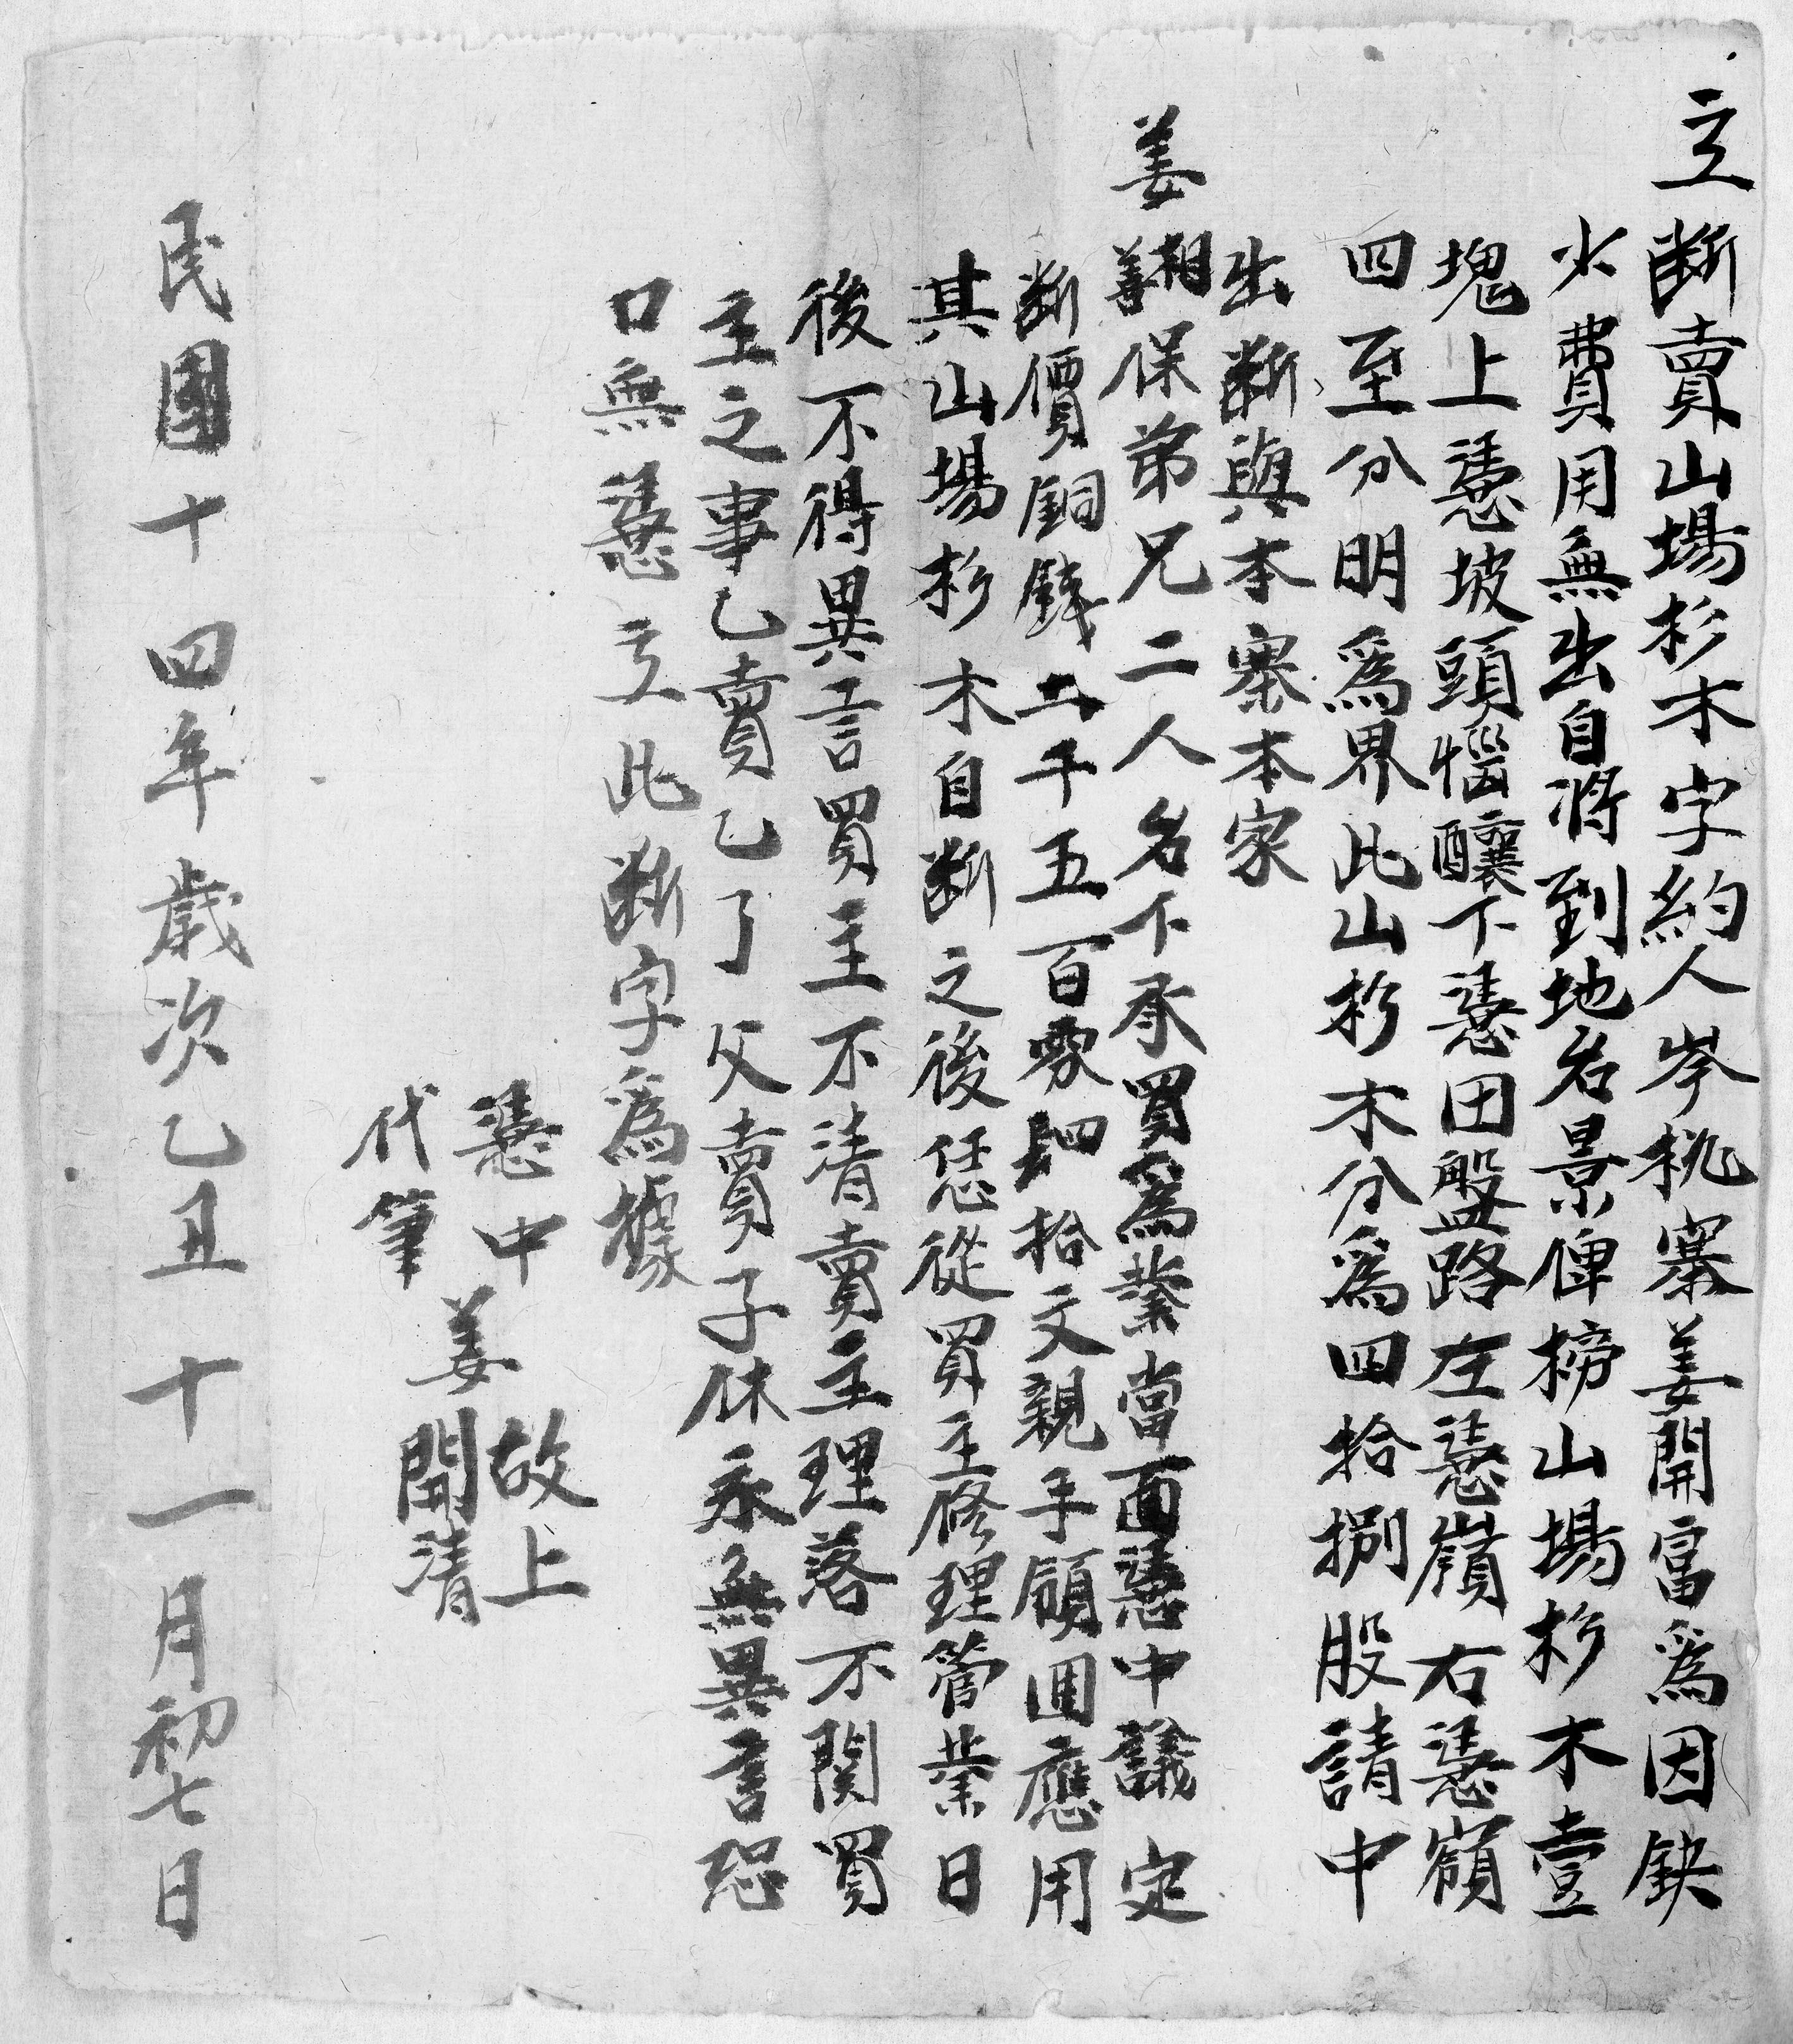 立断賣山場杉木字約人岑桃寨姜開富爲因缺
火費用無出自將到地名景俾榜山場杉木壹
塊上憑坡頭惱釀下憑田盤路左憑嶺右憑嶺
四至分明爲界此山杉木分爲四拾捌股請中
出断與本寨本家
姜翔善保弟兄二人名下承買爲業當面憑中議定
断價銅錢二千五百零四拾文親手領囬應用
其山場杉木自断之後恁從買主修理管業日
後不得異言買主不清賣主理落不関買
主之事乙賣乙了父賣子休永無異言恐
口無憑立此断字爲據
憑中
故上
代筆
姜開清
民國十四年歲次乙丑十一月初七日